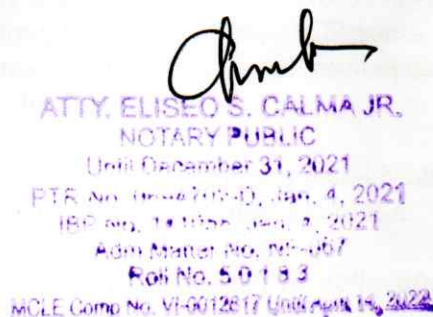 ATTY. ELISEO S. CALMA JR.
NOTARY PUBLIC
Until December 31, 2021
PTR No. Jan. 4, 2021
IBP No. 2021
Adm Matter No.
Roll No. 50183
MCLE Comp No. VI-0012617 Until April 14, 2022